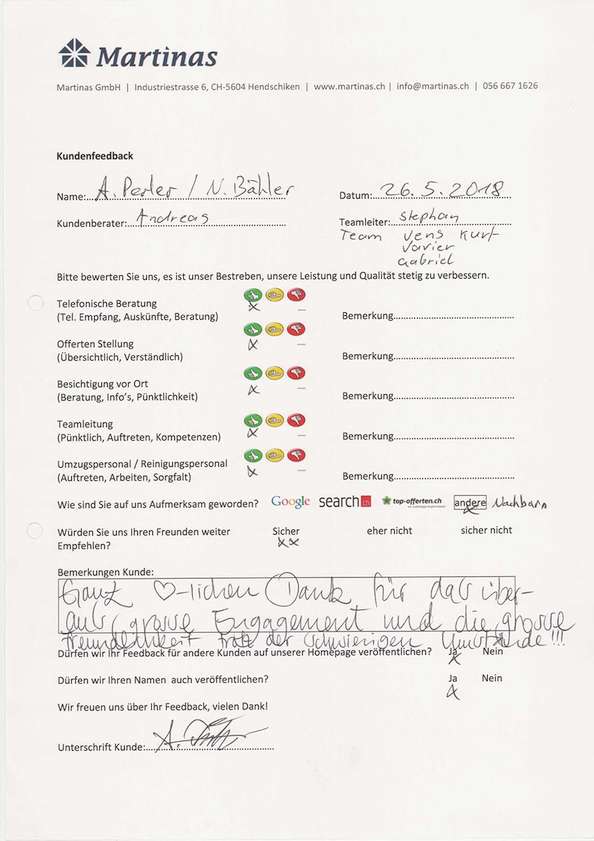 Martinas
Martinas GmbH | Industriestrasse 6, CH-5604 Hendschiken | www.martinas.ch | info@martinas.ch | 056 667 1626
Kundenfeedback
Name: A. Perler / N. Bähler Datum: 26.5.2018
Kundenberater: Andreas Teamleiter: Stephan
Team Jens Kurt
Xavier
Gabriel
Bitte bewerten Sie uns, es ist unser Bestreben, unsere Leistung und Qualität stetig zu verbessern.
Telefonische Beratung x
(Tel. Empfang, Auskünfte, Beratung) Bemerkung
Offerten Stellung x
(Übersichtlich, Verständlich) Bemerkung
Besichtigung vor Ort x
(Beratung, Info's, Pünktlichkeit) Bemerkung
Teamleitung x
(Pünktlich, Auftreten, Kompetenzen) Bemerkung
Umzugspersonal / Reinigungspersonal x
(Auftreten, Arbeiten, Sorgfalt) Bemerkung
Wie sind Sie auf uns Aufmerksam geworden? Google search.ch top-offerten.ch andere x Nachbarn
Würden Sie uns Ihren Freunden weiter Sicher eher nicht sicher nicht
Empfehlen? xx
Bemerkungen Kunde:
Ganz ♡-lichen Dank für das über-
aus grosse Engagement und die grosse
Freundlichkeit trotz der schwierigen Umstände!!!
Dürfen wir Ihr Feedback für andere Kunden auf unserer Homepage veröffentlichen? Ja x Nein
Dürfen wir Ihren Namen auch veröffentlichen? Ja x Nein
Wir freuen uns über Ihr Feedback, vielen Dank!
Unterschrift Kunde: A.